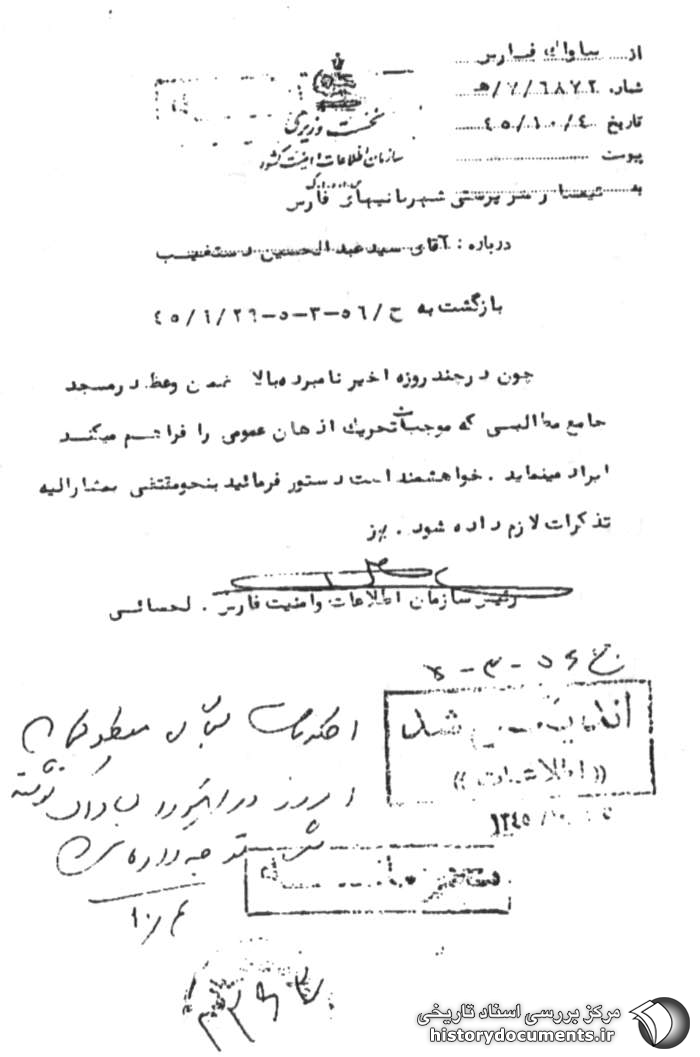 از ساواک فارس
شماره ۶۸۷۲/۷/هـ
تاریخ ۴۵/۱۰/۴
پیوست
نخست وزیری
سازمان اطلاعات و امنیت کشور
به تیمسار سرپرستی شهربانیهای فارس
درباره : آقای سید عبدالحسین دستغیب
بازگشت به ح/۵۶-۳-۵-
چون در چند روزه اخیر نامبرده بالا ضمن وعظ در مسجد
جامع مطالبی که موجبات تحریک اذهان عمومی را فراهم میکند
ایراد مینماید . خواهشمند است دستور فرمائید بنحو مقتضی بمشارالیه
تذکرات لازم داده شود .
رئیس سازمان اطلاعات و امنیت فارس . لحسائی
۵-۳-۵۶ ح
شد
((اطلاعات))
۱۳۴۵/۱۰/
امروز
۱۰/۴
مرکز بررسی اسناد تاریخی
historydocuments.ir